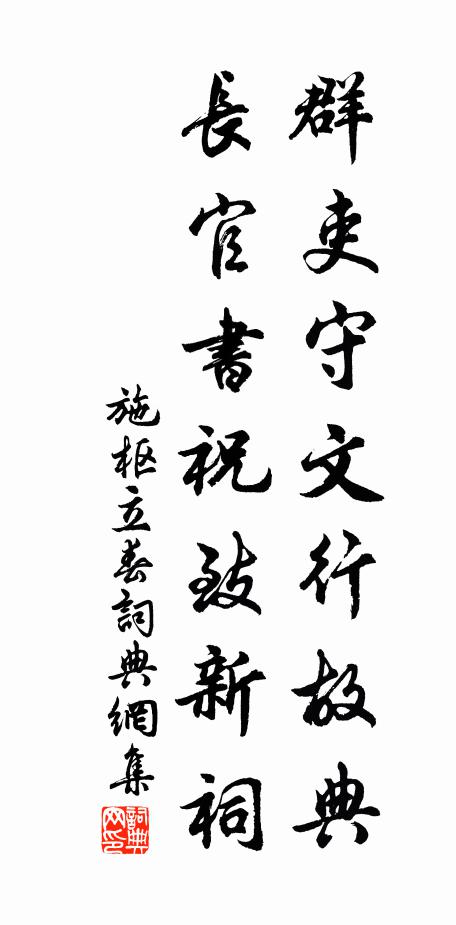 群吏守文行故典
長官書祝致新祠
施枢立春詞典網集
詞典網印